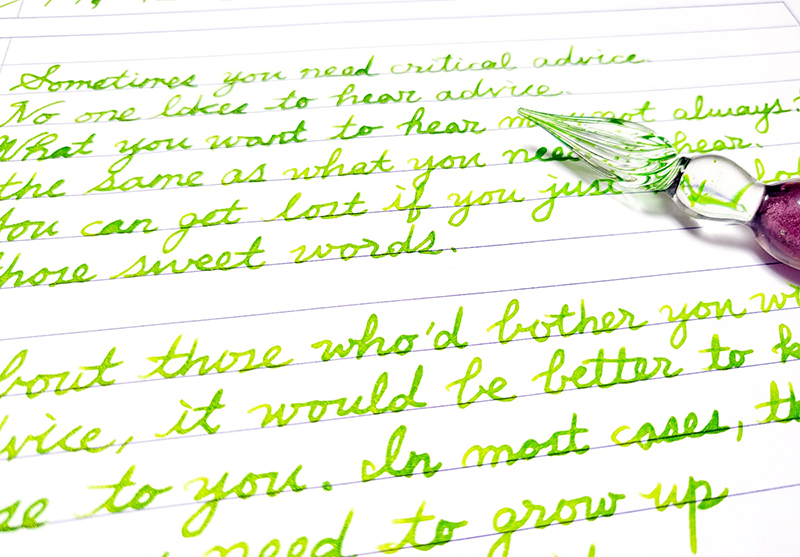 Sometimes you need critical advice.
No one likes to hear advice.
What you want to hear not always
the same as what you need hear.
You can get lost if you just
those sweet words.
about those who'd bother you
advice, it would be better to
to you. In most cases,
need to grow up